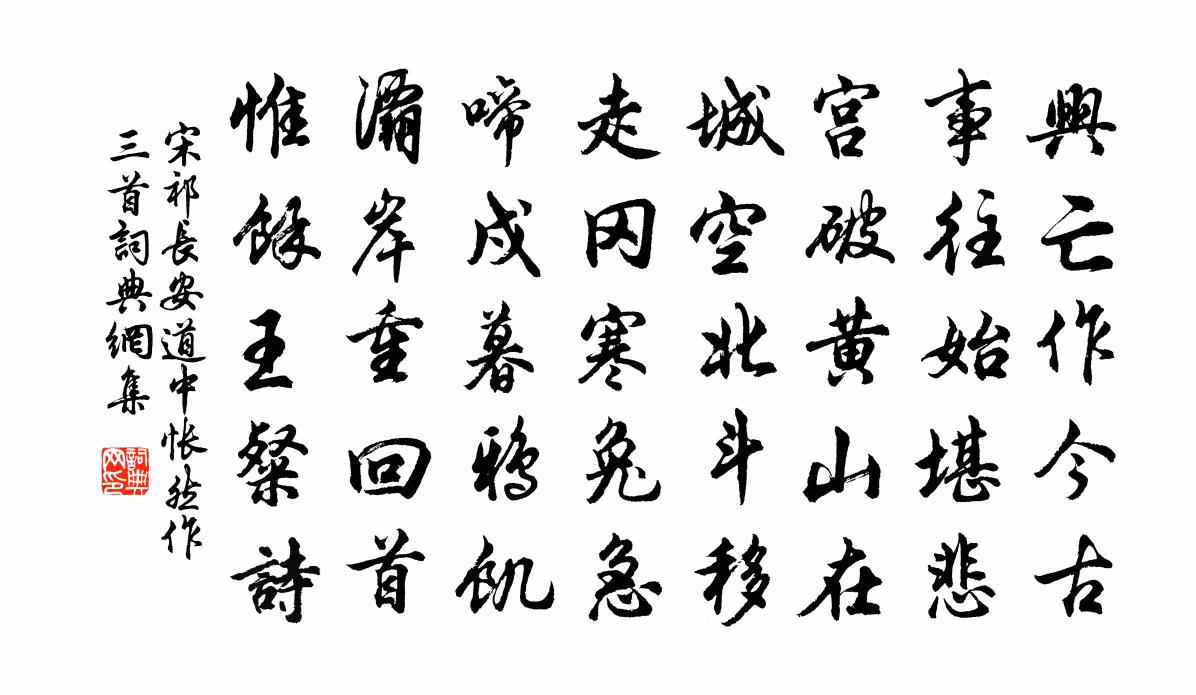 興亡作今古
事往始堪悲
宫破黄山在
城空北斗移
走冈寒兔急
啼戍暮鸦飢
灞岸重回首
惟餘王粲詩
宋祁長安道中怅然作
三首詞典網集
詞典
网印